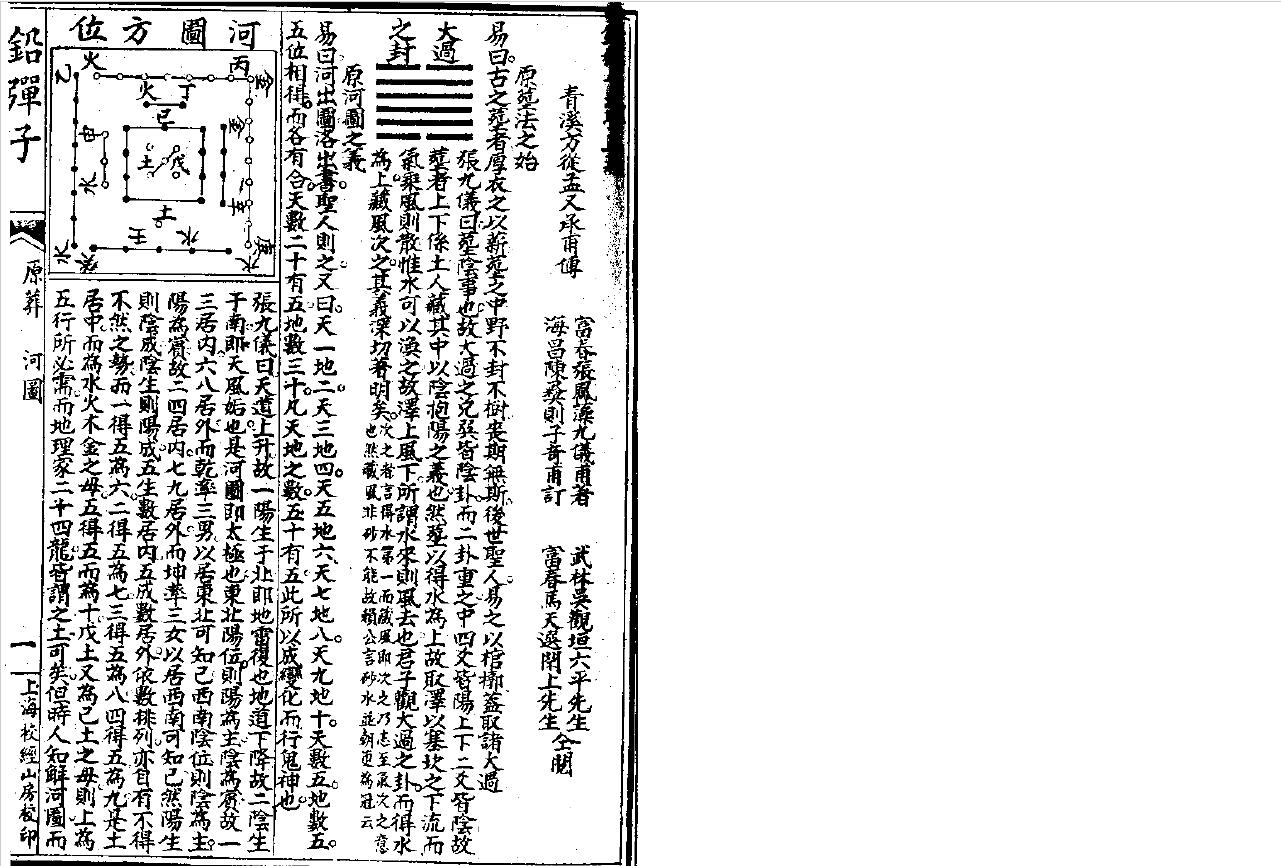 青溪方從孟又承甫傳
富春張鳳藻九儀甫著
海昌陳爕則子奇甫訂
武林吳觀垣六平先生
富春馬天選閑上先生
仝閱
原塟法之始
易曰古之塟者厚衣之以薪塟之中野不封不樹喪期無斯後世聖人易之以棺槨蓋取諸大過
大過
之封
張九儀曰塟陰事也故大過之兌巽皆陰卦而二卦重之中四爻皆陽上下二爻皆陰故
塟者上下係土人藏其中以陰抱陽之義也然塟以得水為上故取澤以塞坎之下流而
氣乘風則散惟水可以渙之故澤上風下所謂水來則風去也君子觀大過之卦而得水
為上藏風次之其義深切著明矣
次之者言得水第一而藏風即次之乃志至氣次之意
也然藏風非砂不能故賴公言砂水並朝更為冠云
原河圖之義
易曰河出圖洛出書聖人則之又曰天一地二天三地四天五地六天七地八天九地十天數五地數五
五位相得而各有合天數二十有五地數三十凡天地之數五十有五此所以成變化而行鬼神也
河圖方位
丙
丁
火
火
乙
甲
木
木
癸
壬
水
水
土
土
戊
己
辛
金
庚
張九儀曰天道上升故一陽生于北即地雷復也地道下降故二陰生
于南即天風姤也是河圖即太極也東北陽位則陽為主陰為賓故一
三居內六八居外而乾率三男以居東北可知已西南陰位則陰為主
陽為賓故二四居內七九居外而坤率三女以居西南可知已然陽生
則陰成陰生則陽成五生數居內五成數居外依數排列亦自有不得
不然之勢而一得五為六二得五為七三得五為八四得五為九是土
居中而為水火木金之母五得五而為十戊土又為己土之母則上為
五行所必需而地理家二十四龍皆謂之土可矣但時人知解河圖而
鉛彈子
原葬 河圖
一
上海校經山房校印